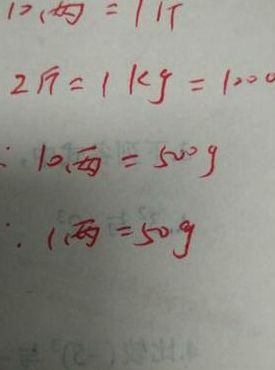 10两=1斤
2斤=1kg=1000
∴10两=500g
∴1两=50g